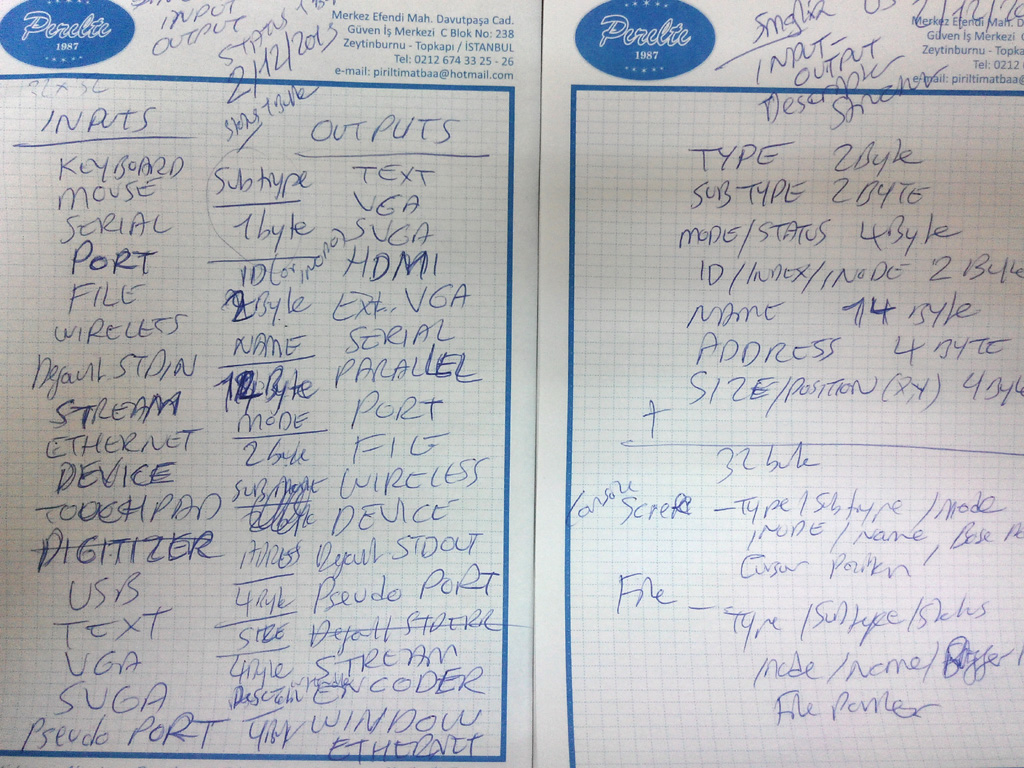 Pırıltı
1987
INPUT
OUTPUT
STATUS
2/12/2013
Merkez Efendi Mah. Davutpaşa Cad.
Güven İş Merkezi C Blok No: 238
Zeytinburnu - Topkapı / İSTANBUL
Tel: 0212 674 33 25 - 26
e-mail: piriltimatbaa@hotmail.com
32 x 32
INPUTS
KEYBOARD
MOUSE
SERIAL
PORT
FILE
WIRELESS
Default STDIN
STREAM
ETHERNET
DEVICE
TOUCHPAD
DIGITIZER
USB
TEXT
VGA
SVGA
Pseudo PORT
Subtype
1 byte
ID
2 Byte
NAME
Byte
MODE
2 byte
ADDRESS
4 Byte
SIZE
4 Byte
4 Byte
OUTPUTS
TEXT
VGA
SVGA
HDMI
Ext. VGA
SERIAL
PARALLEL
PORT
FILE
WIRELESS
DEVICE
Default STDOUT
Pseudo PORT
Default STDERR
STREAM
ENCODER
WINDOW
ETHERNET
Pırıltı
1987
INPUT-
OUTPUT
Descriptor
Structure
Merkez Efendi Mah. Davutpa
Güven İş Merkezi C Blo
Zeytinburnu - Topka
Tel: 0212 6
e-mail: piriltimatbaa@
TYPE 2 Byte
SUBTYPE 2 BYTE
MODE/STATUS 4 Byte
ID/INDEX/INODE 2 Byte
NAME 14 Byte
ADDRESS 4 BYTE
SIZE/POSITION (X,Y) 4 Byte
+
32 byte
Console Screen - Type/Subtype/mode
INODE/Name, Base
Cursor Position
File - Type/Subtype/Status
inode/name/Buffer/
File Pointer